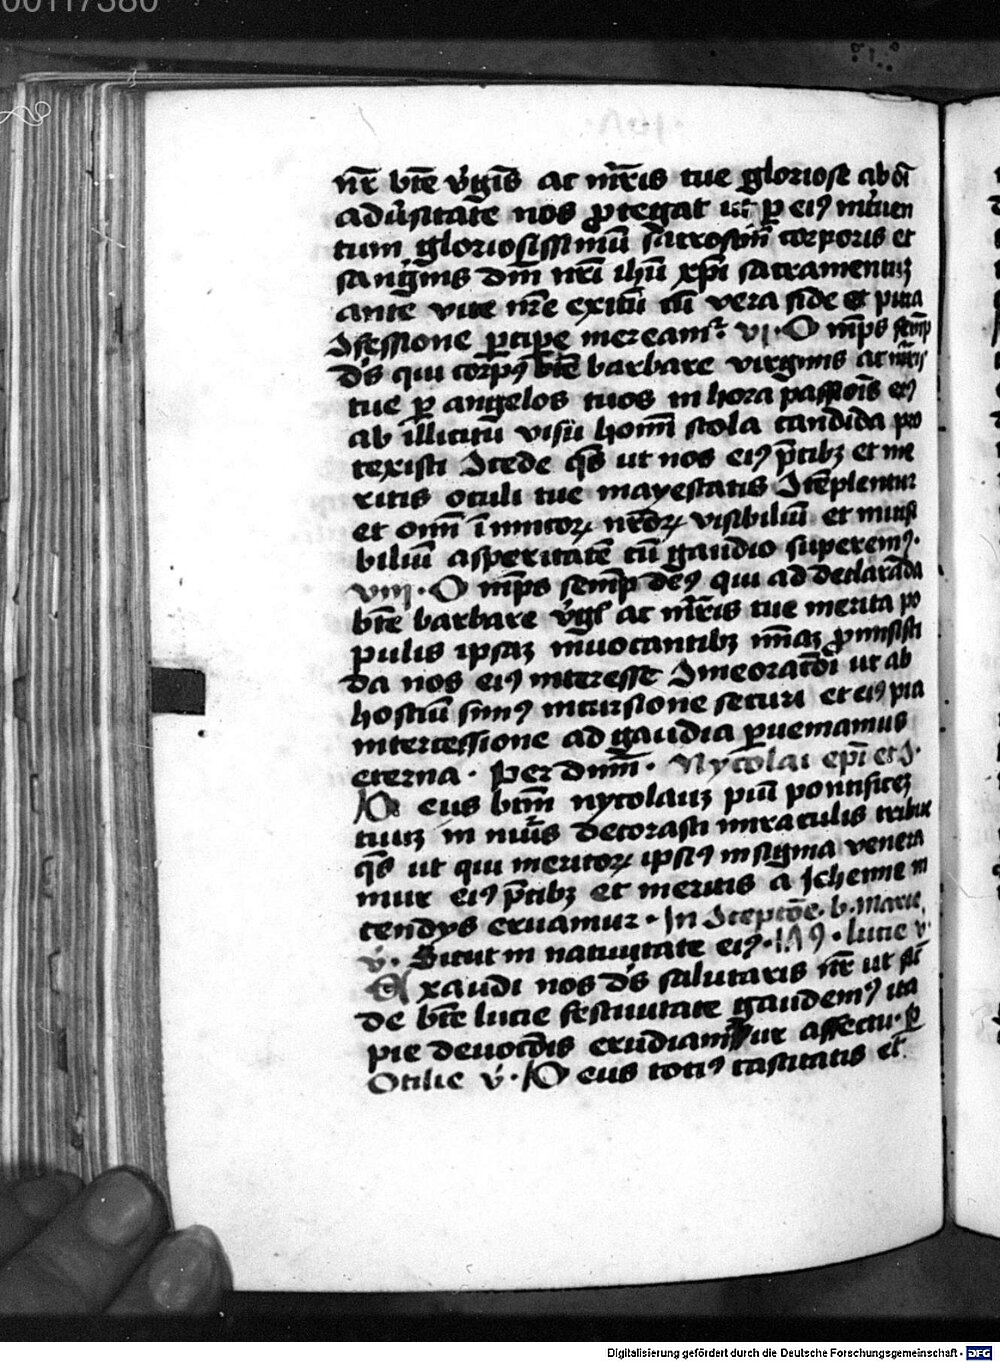 00117380
nr̄e btē v̓gīs ac mr̄is tue gloriose ab oī
adūsitate nos ꝓtegat ut ꝑ eiꝰ mūen
tum gloriosissimū sacrosōm corporis et
sangīnis dn̄i nr̄i ihū xp̄i sacramentuꝫ
ante vite nr̄e exitū cū vera fide et pura
ↄfessione ꝑcipe meream̄. O mp̄s semp̄
ds̄ qui corpꝰ btē barbare virginis ac mr̄is
tue ꝑ angelos tuos in hora passiōis eiꝰ
ab illicitū visū hoīm stola candida pro
texisti ↄcede qs̄ ut nos eiꝰ p̄cibꝫ et me
ritis oculi tue mayestatis ↄtēplentur
et om̄ īimicoꝝ nr̄oꝝ visibiliū et inuisi
biliū asperitatē cū gaudio superemꝰ.
viij. O mp̄s semp̄ deꝰ qui ad declarāda
btē barbare v̓gīs ac mr̄is tue merita po
pulis ipsaꝫ inuocantibꝫ ꝓmisisti
da nos eiꝰ interesse ↄmeoracōi ut ab
hostiū simꝰ incursione securi et eiꝰ pia
intercessione ad gaudia ꝑueniamus
eterna. Per dnm̄. Nycolai ep̄i et ↄ.
Deus btm̄ nycolauꝫ piū pontificeꝫ
tuuꝫ in miris decorasti miraculis tribue
qs̄ ut qui meritoꝝ ipsiꝰ insignia venera
mur eiꝰ p̄cibꝫ et meritis a Jehenne in
cendys eruamur. In ↄcepcōe. b. marie.
v̓. Sicut in natiuitate eiꝰ. lucie v̓
Exaudi nos ds̄ salutaris nr̄ ut si
de btē lucie festiuitate gaudemꝰ ita
pie deuocōis erudiamur affectu. ꝑ
Otilie v̓. Deus totiꝰ castitatis et
Digitalisierung gefördert durch die Deutsche Forschungsgemeinschaft - DFG